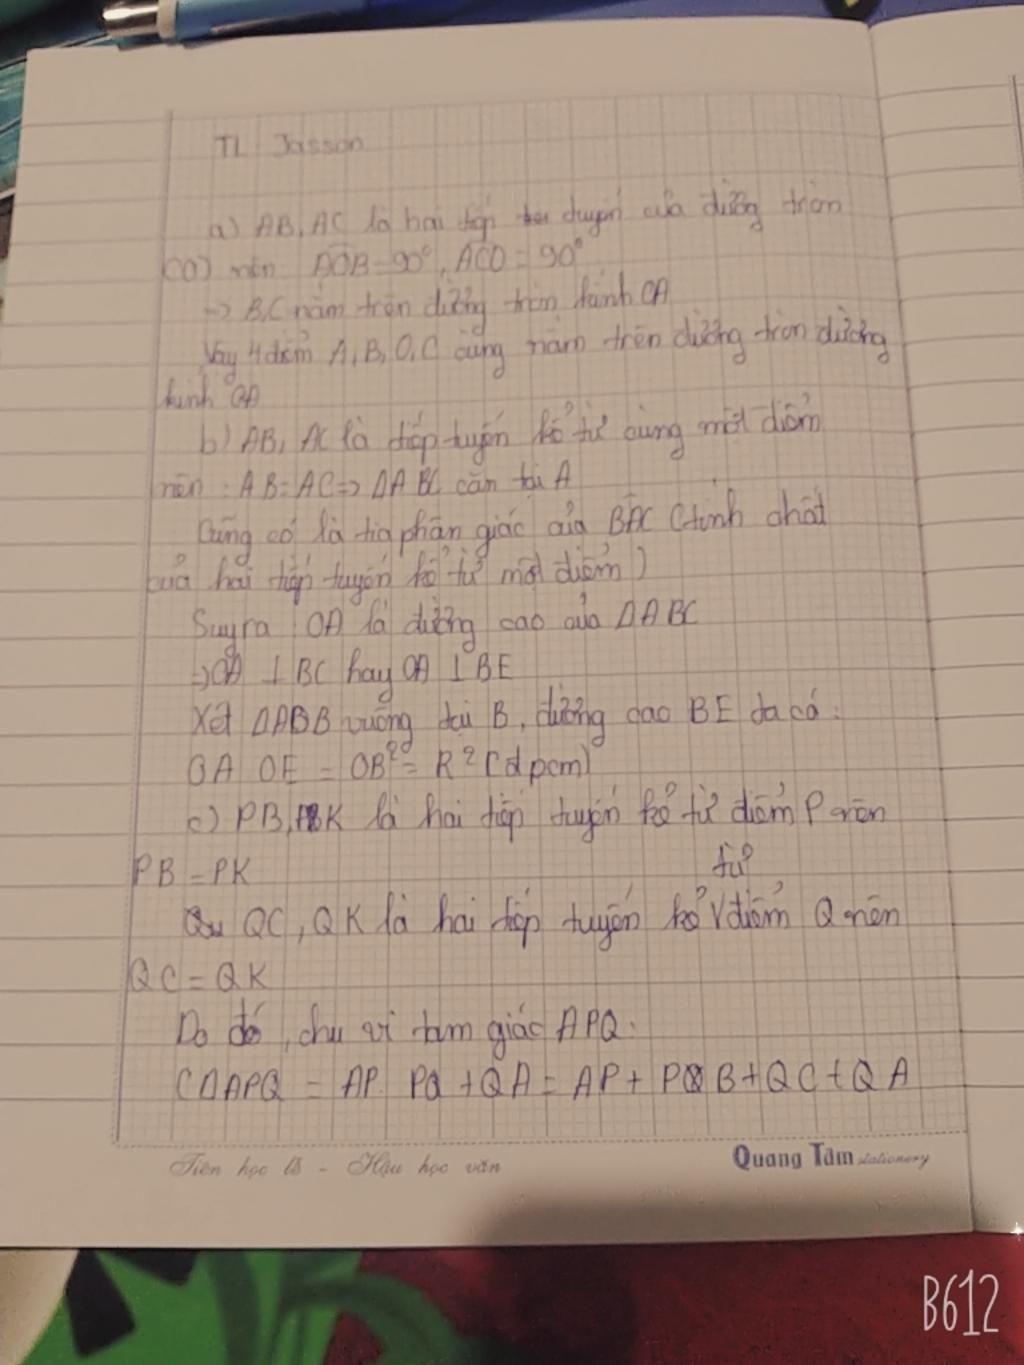 TL Jasson
a) AB, AC là hai tiếp tuyến của đường tròn
(O) nên AOB = 90°, ACO = 90°
-> B, C nằm trên đường tròn kính OA
Vậy 4 điểm A, B, O, C cùng nằm trên đường tròn đường
kính OA
b) AB, AC là tiếp tuyến kẻ từ cùng một điểm
nên : AB = AC => ΔABC cân tại A
Cũng có là tia phân giác của BAC (tính chất
của hai tiếp tuyến kẻ từ một điểm)
Suy ra OA là đường cao của ΔABC
-> OA ⊥ BC hay OA ⊥ BE
Xét ΔABB vuông tại B, đường cao BE ta có :
OA OE = OB² = R² (đpcm)
c) PB, PK là hai tiếp tuyến kẻ từ điểm P nên
PB = PK
QC, QK là hai tiếp tuyến kẻ từ điểm Q nên
QC = QK
Do đó, chu vi tam giác APQ:
CΔAPQ = AP PQ + QA = AP + PB + QC + QA
Tiên học lễ - Hậu học văn
Quang Tâm stationery
B612